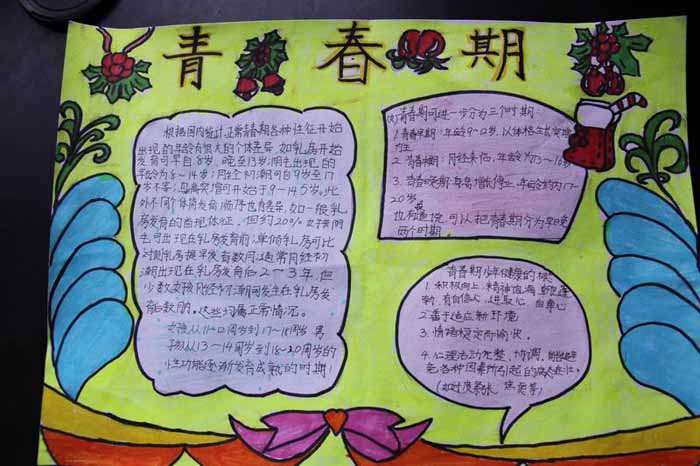 青春期
根据国内统计正常青春期各种性征开始
出现的年龄有很大的个体差异，如乳房开始
发育可早自8岁，晚至13岁；阴毛出现的
年龄为8～14岁；月经初潮可自9岁至17
岁不等；身高突增可开始于9～14.5岁。此
外不同个体
顺序也有差异，如一般乳
房发育的首现体征，但约20%女子阴
毛可出现在乳房发育前；单侧乳房可比
对侧乳房提早发育数月；通常月经初
潮出现在乳房发育后2～3年，但
少数女孩月经初潮可发生在乳房发
育后数月。这些均属正常情况。
女孩从11～12周岁到17～18周岁 男
孩从13～14周岁到18～20周岁的
性功能逐渐发育成熟的时期！
青春期可进一步分为三个时期：
1.青春早期：年龄9～12岁，以体格生长突增
为主
2.青春中期：月经来临，年龄为13～16岁
3.青春晚期：身高增长停止，年龄约为17～
20岁
也有学说，可以把青春期分为早晚
两个时期。
青春期少年健康的标
1.积极向上，精神饱满，朝气蓬
勃，有自信心，进取心，自尊心
2.善于适应新环境
3.情绪稳定而愉快。
4.心理活动完整、协调，能够避
免各种因素所引起的病态
（如过度紧张、焦虑等）